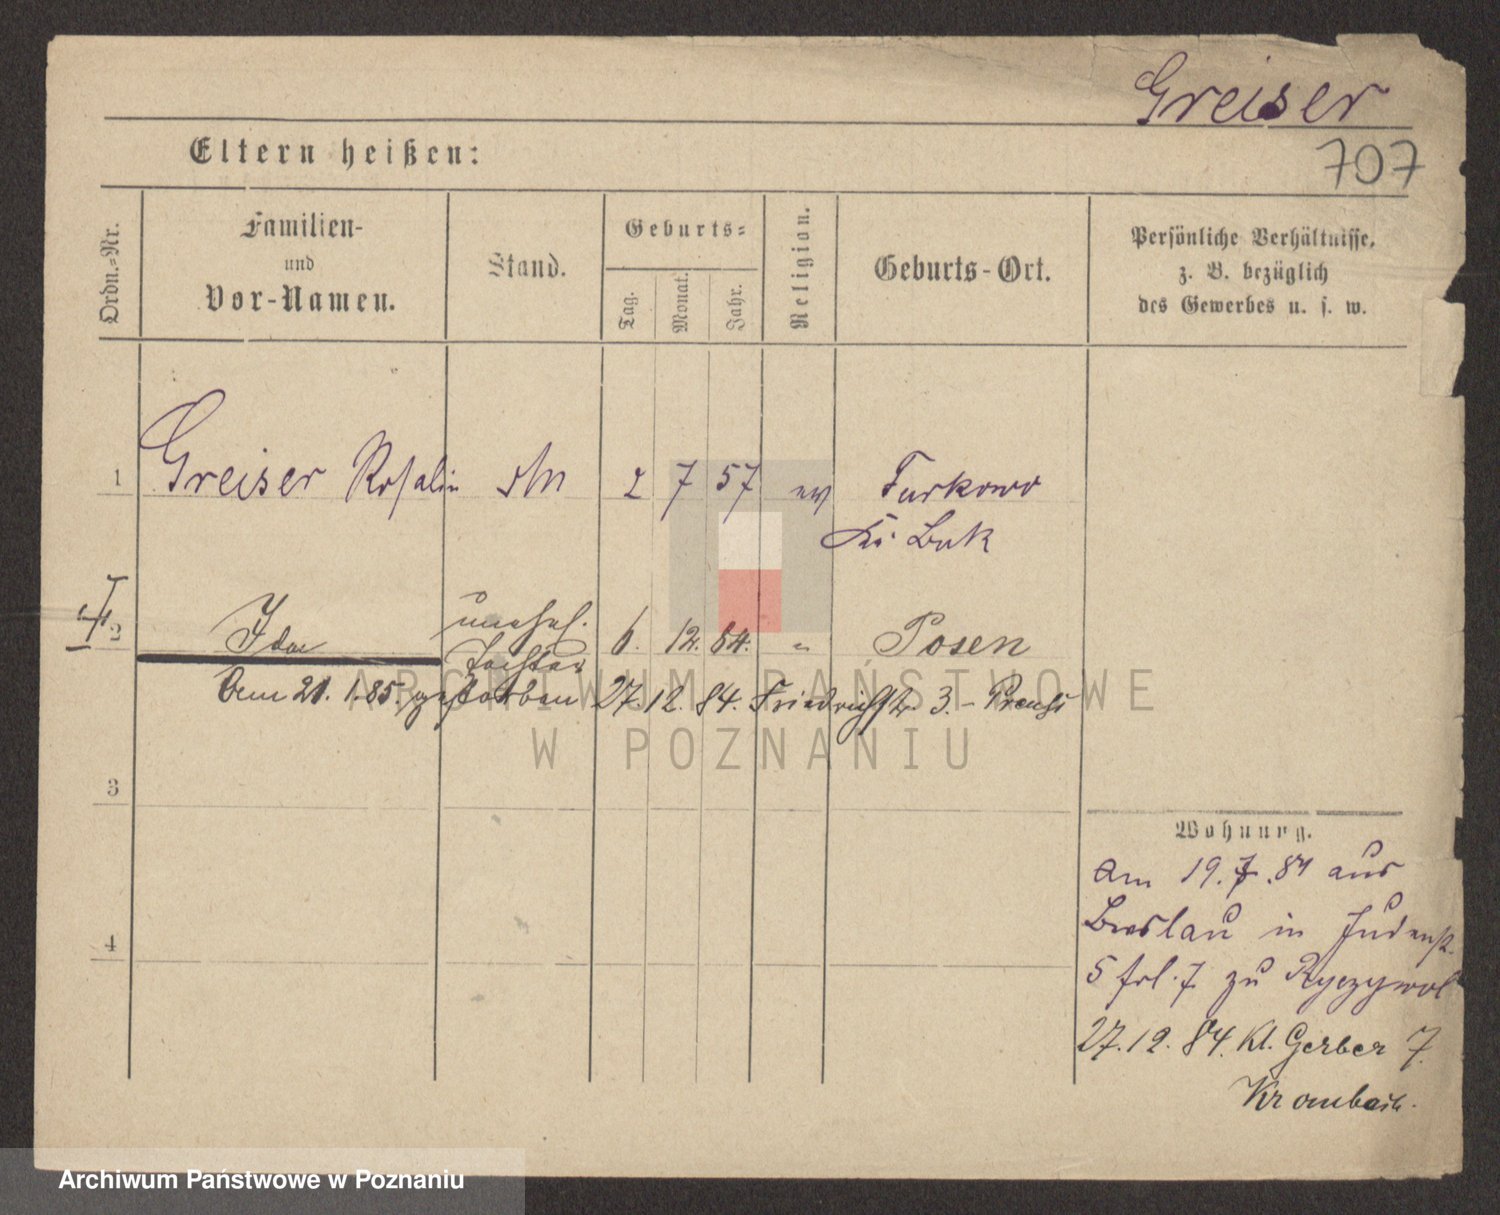 Greiser
707
Eltern heißen:
Ordn.-Nr.
Familien-
und
Vor-Namen.
Stand.
Geburts-
Tag.
Monat.
Jahr.
Religion.
Geburts-Ort.
Persönliche Verhältnisse,
z. B. bezüglich
des Gewerbes u. s. w.
1 Greiser Rosalie 2 7 57 ev Turkowo
Kr. Buk
2 Ida unehel. 6. 12. 84. " Posen
Tochter
Am 21. 1. 85. gestorben 27. 12. 84. Friedrichstr. 3. - Preuß
3
4
Wohnung.
Am 19. 7. 84 aus
Breslau in Judenstr.
5 frl. J. zu Ryczywol
27. 12. 84. Kl. Gerber 7.
Krombach.
ARCHIWUM PAŃSTWOWE
W POZNANIU
Archiwum Państwowe w Poznaniu